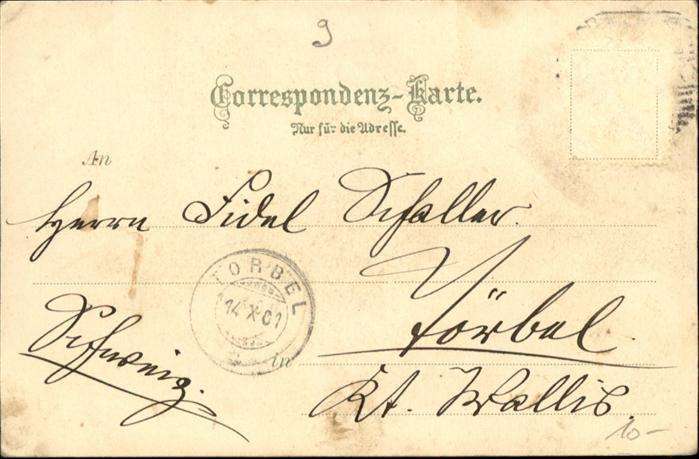 9
Correspondenz-Karte.
Nur für die Adresse.
An
Herrn Fidel Schaller.
TORBEL
14 X 01
Törbel
Schweiz.
in
Kt. Wallis.
10-